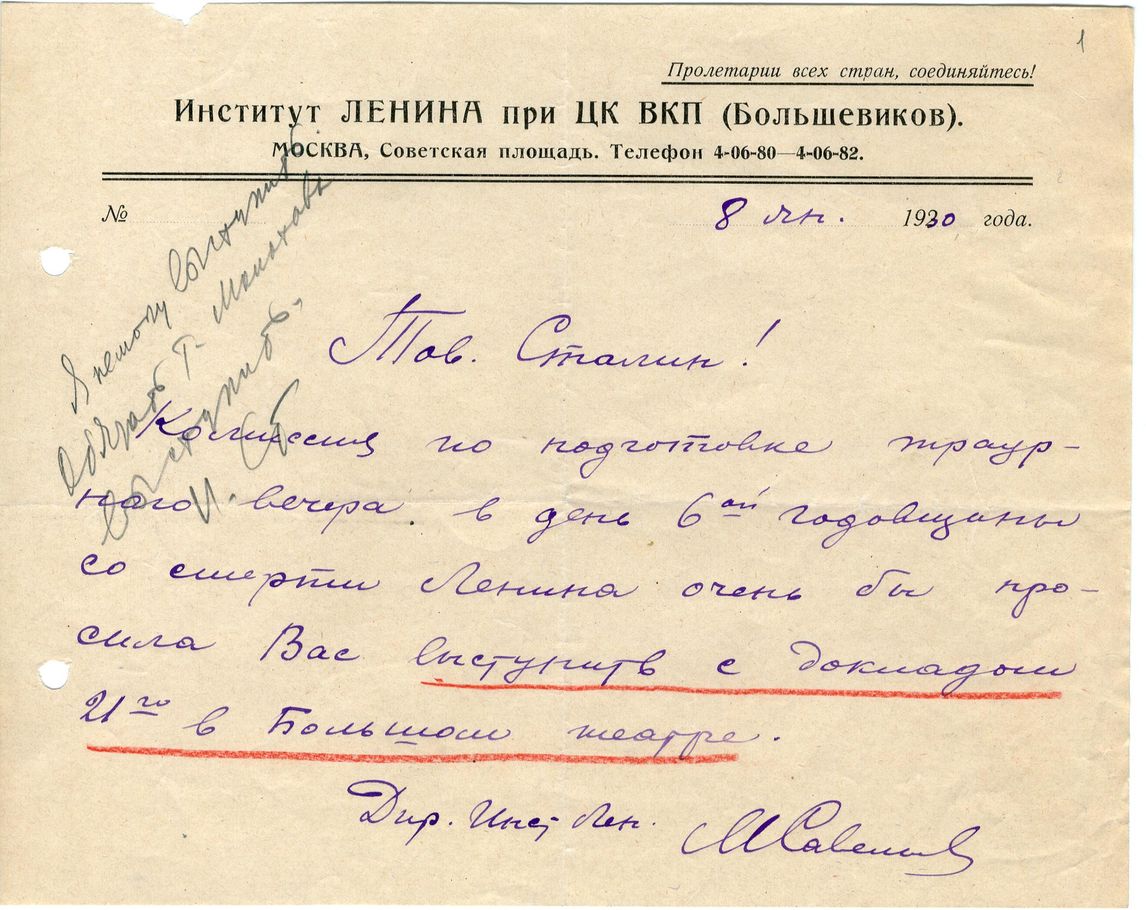 1
Пролетарии всех стран, соединяйтесь!
Институт ЛЕНИНА при ЦК ВКП (Большевиков).
МОСКВА, Советская площадь. Телефон 4-06-80—4-06-82.
№
8 ян. 1930 года.
Я не могу выступить.
Обязать т. Молотова
выступить.
И. Ст
Тов. Сталин!
Комиссия по подготовке траур-
ного вечера в день 6ой годовщины
со смерти Ленина очень бы про-
сила Вас выступить с докладом
21го в Большом театре.
Дир. Инст Лен. МСавельев